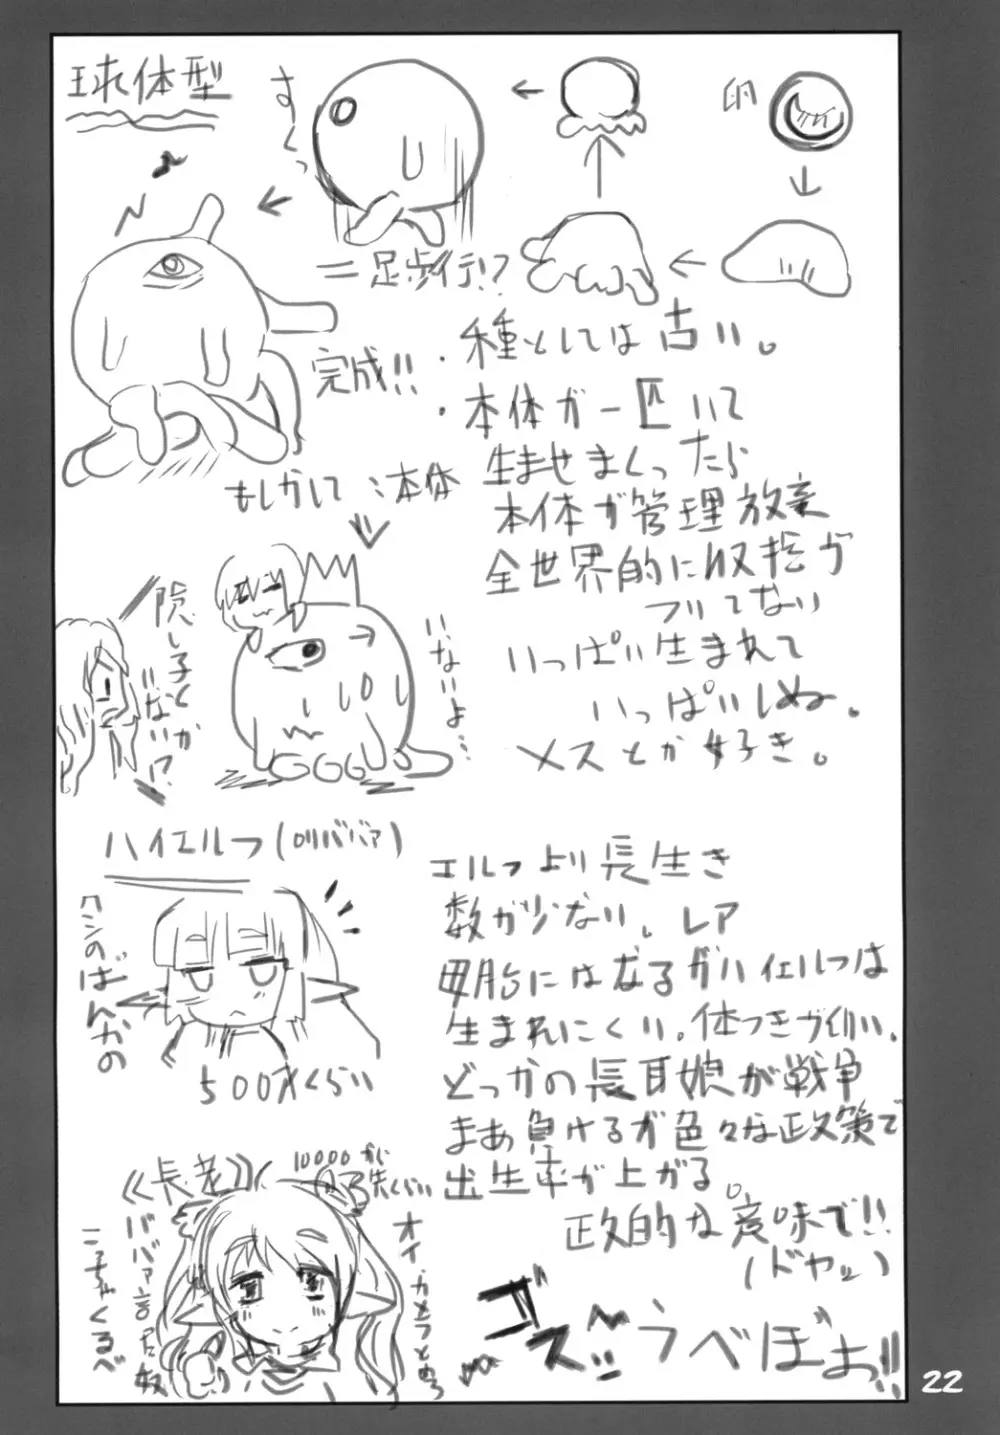 球体型
卵
すくっ
二足歩行!?
完成!!
・種としては古い。
・本体が一匹いて
生ませまくったら
本体が管理放棄
全世界的に収拾が
ついてない
いっぱい生まれて
いっぱいしぬ。
メスとか好き。
もしかして:本体
隠し子とか
いない!?
いないよ…
ハイエルフ(ロリババァ)
500才くらい
エルフより長生き
数が少ない。レア
母胎にはなるがハイエルフは
生まれにくい。体つきが幼い。
どっかの長耳娘が戦争
まあ負けるが色々な政策で
出生率が上がる。
政的な意味で!!
(ドヤッ)
《長老》
10000才くらい
ババァ言った奴
ゴズッ
うべぼぉっ!!
22